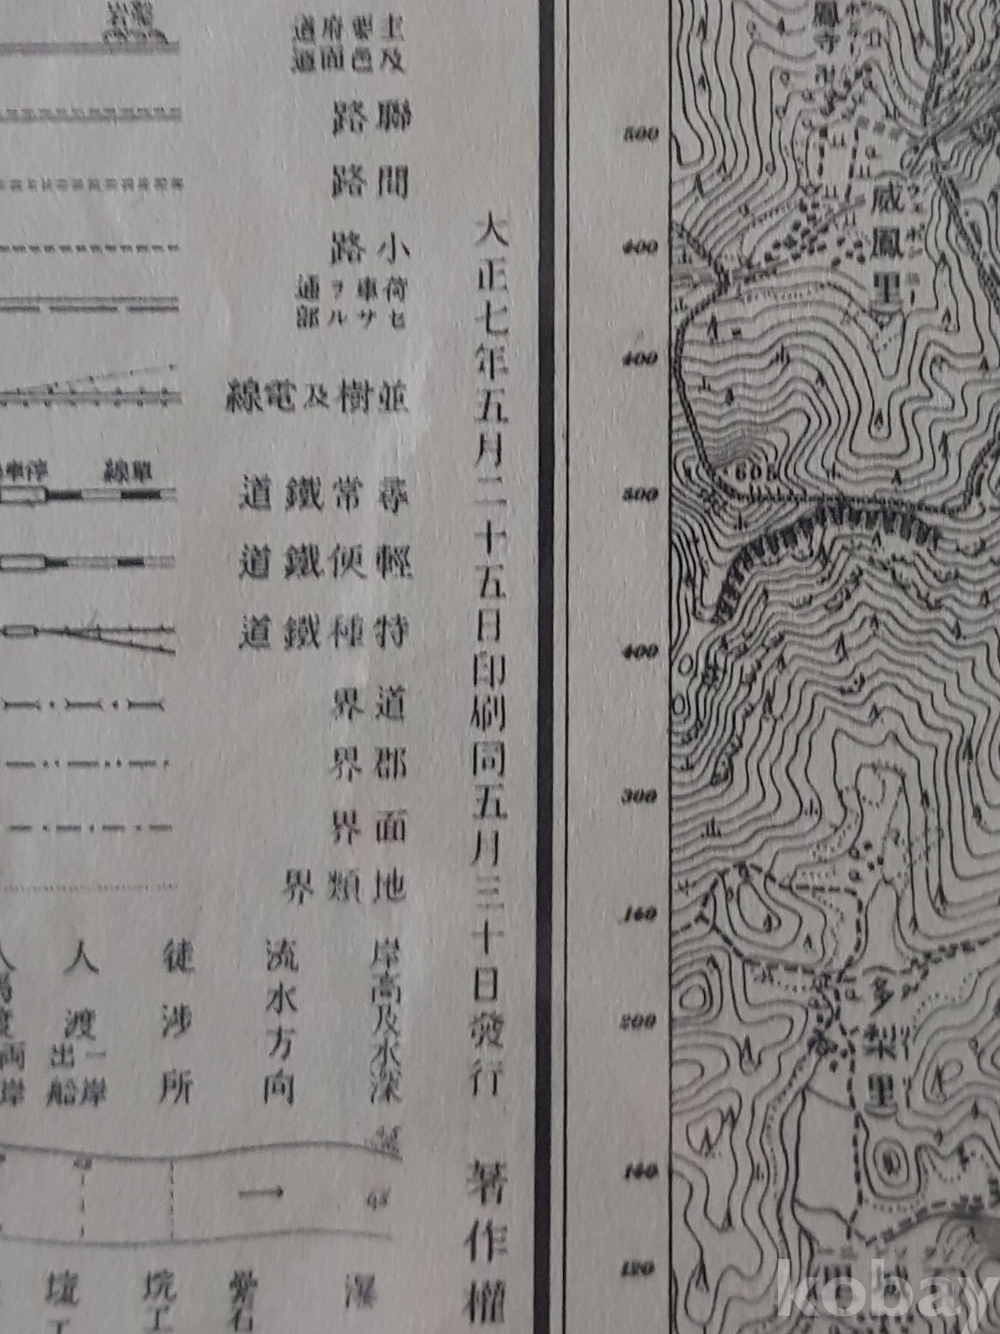 岩
主要府道
及邑面道
聯路
間路
小路
荷車ヲ通
セサル部
並樹及電線
單線
停車
尋常鐵道
輕便鐵道
特種鐵道
道界
郡界
面界
地類界
岸高及水深
流水方向
徒涉所
人渡
一岸
出船
両岸
大正七年五月二十五日印刷同五月三十日發行
著作權
鳳寺
威鳳里
605
多梨里
500
400
400
500
400
300
160
200
140
120
kobay